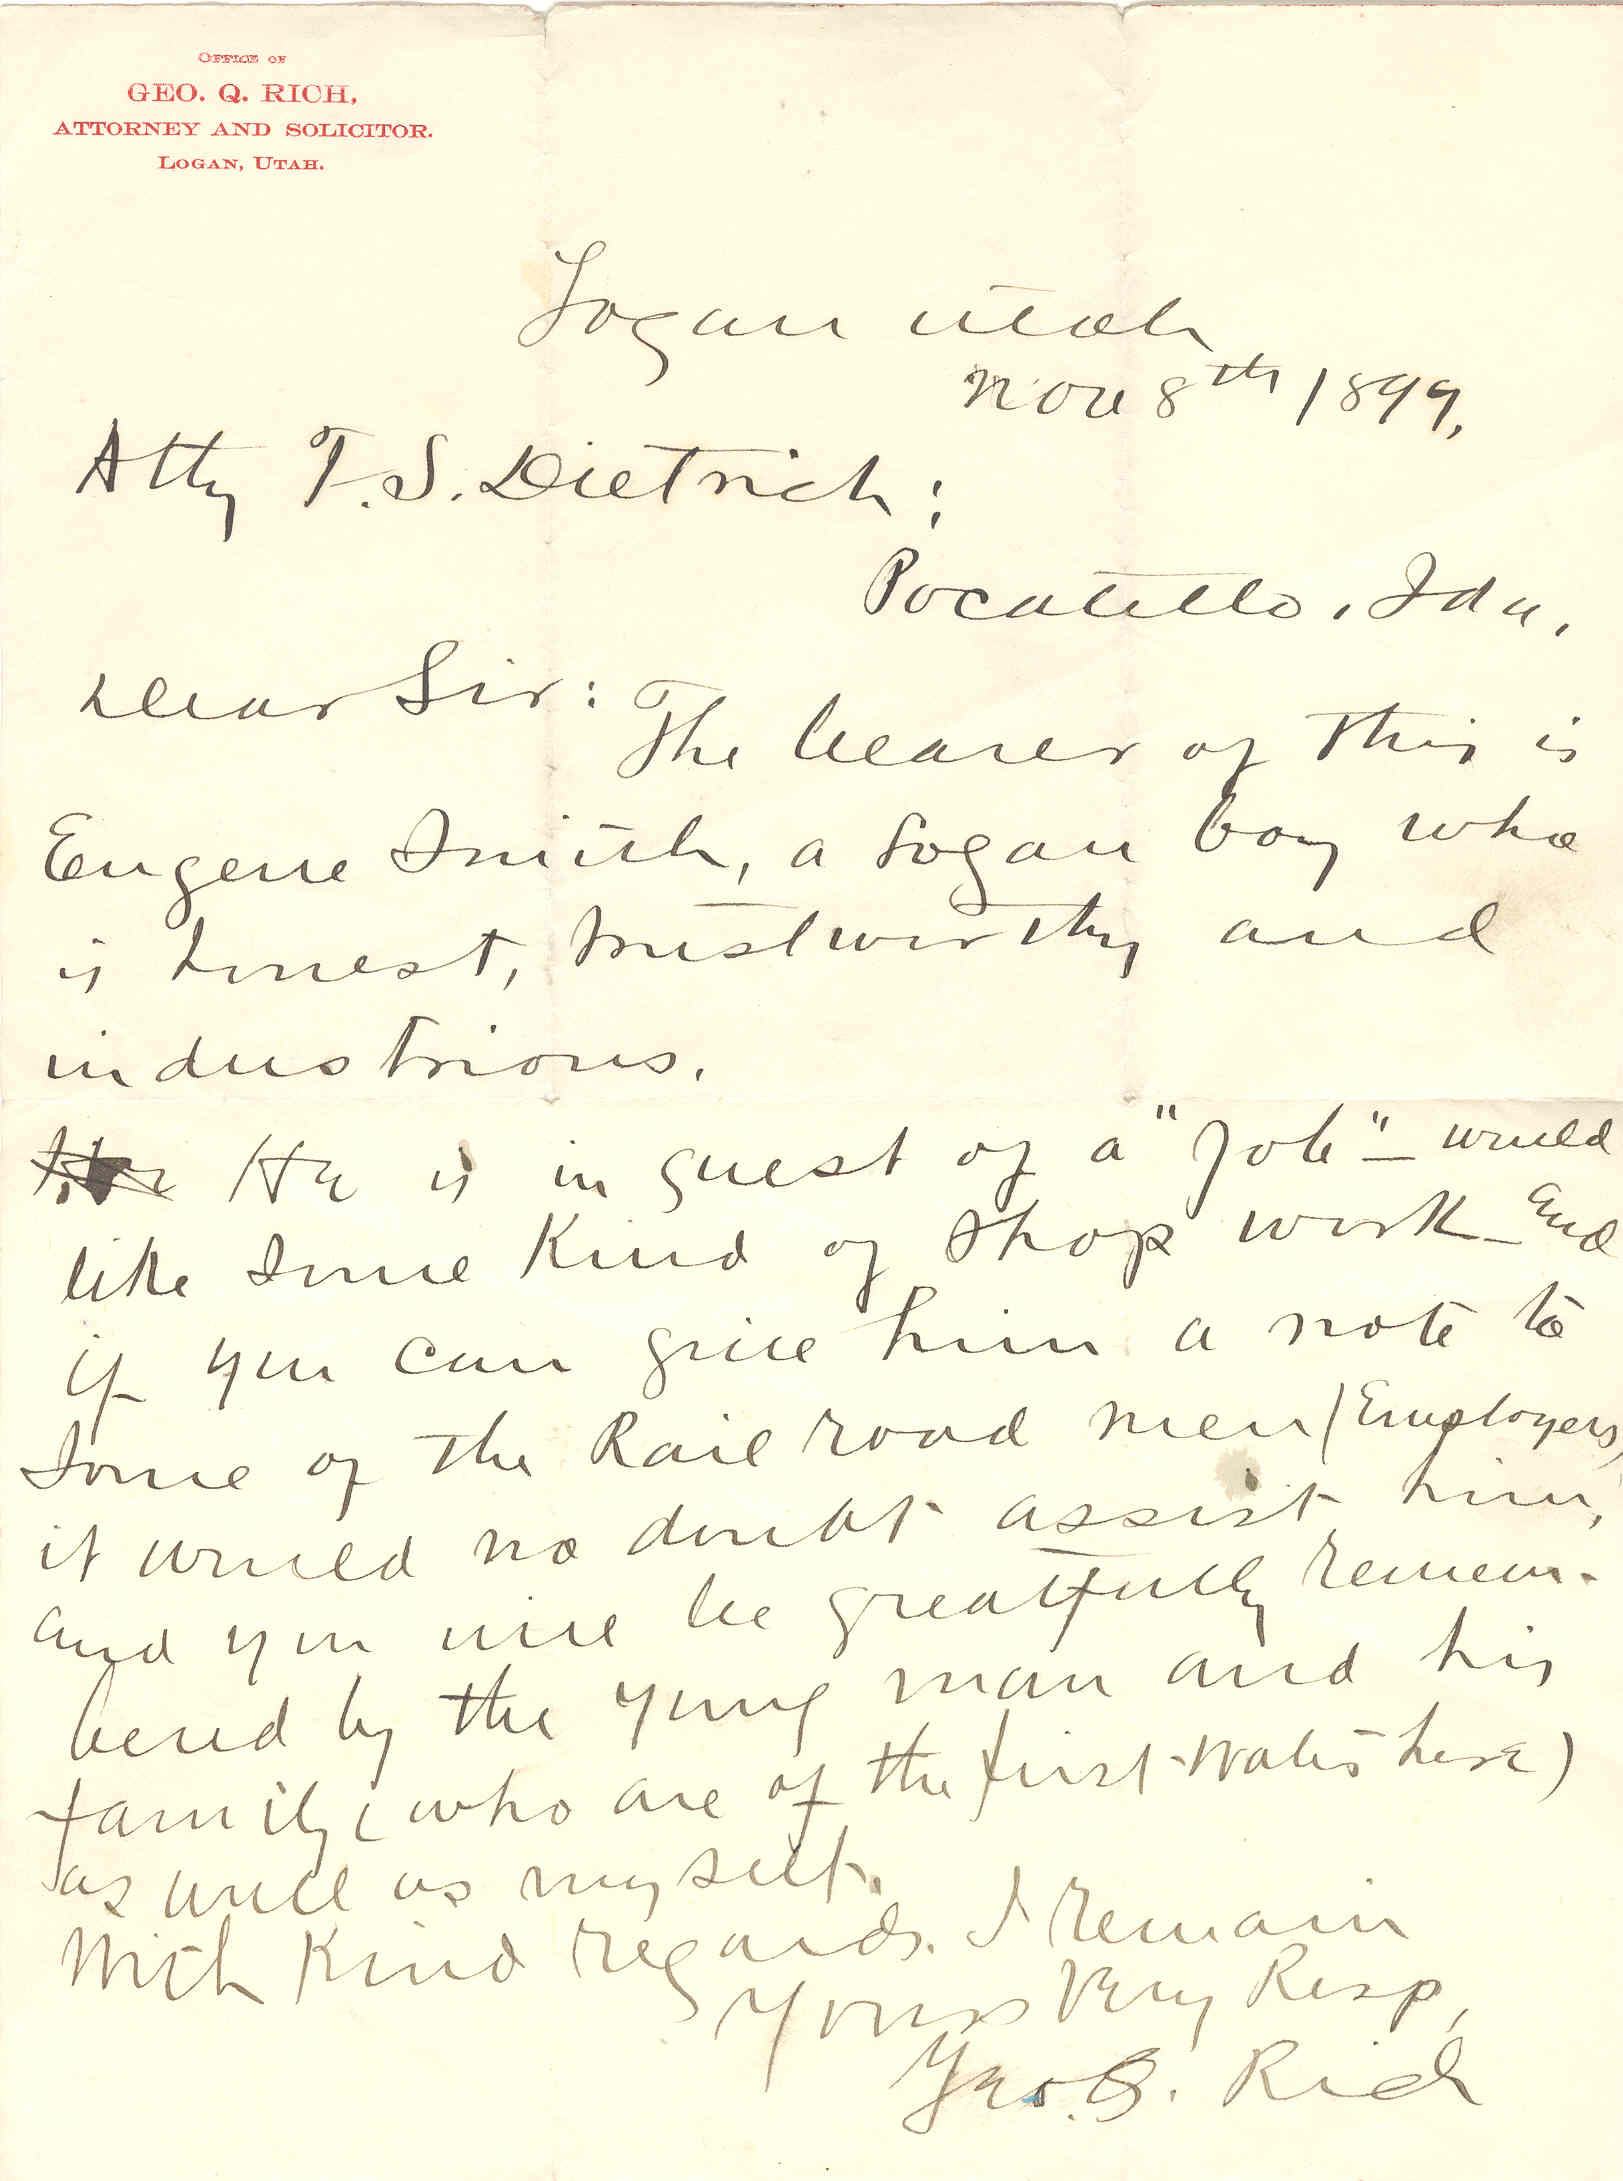 OFFICE OF
GEO. Q. RICH,
ATTORNEY AND SOLICITOR.
LOGAN, UTAH.
Logan Utah
Nov 8th 1899.
Atty T. S. Dietrich;
Pocatello, Ida,
Dear Sir:
The bearer of this is
Eugene Smith, a Logan boy who
is honest, trustworthy and
industrious.
He is in quest of a "Job" – would
like some Kind of shop work – And
if you can give him a note to
Some of the Rail road men (Employers)
it would no doubt assist him,
and you will be greatfully remem-
bered by the young man and his
family (who are of the first here)
as well as myself.
With Kind regards. I remain
Yours Very Resp,
Geo. Q. Rich